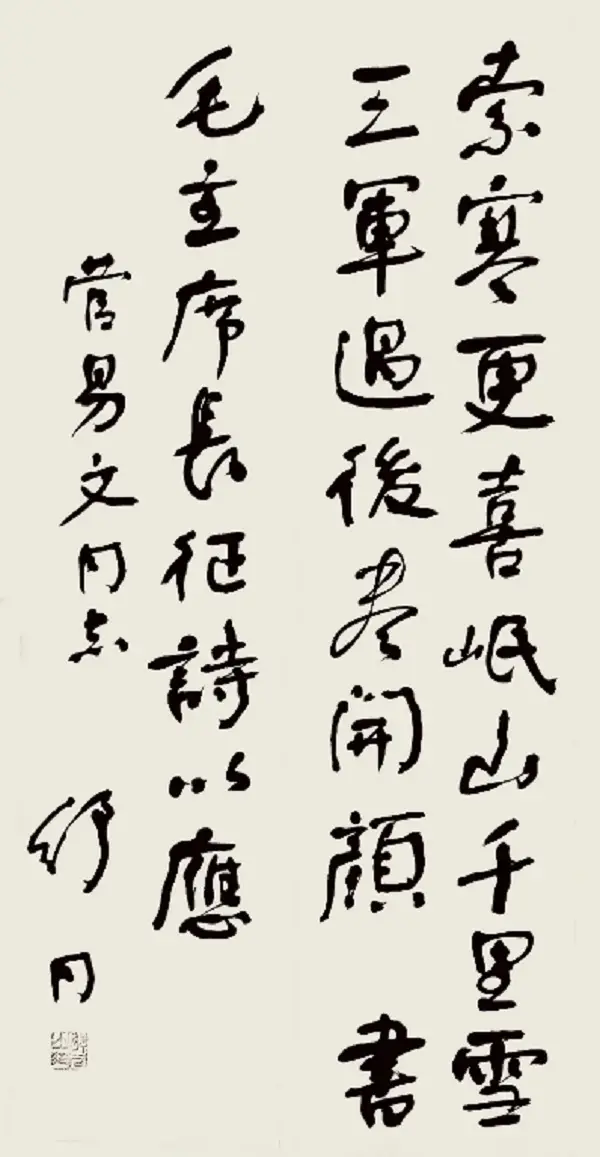 索寒更喜岷山千里雪
三軍過後尽開顔 書
毛主席長征詩以應
管易文同志
舒同